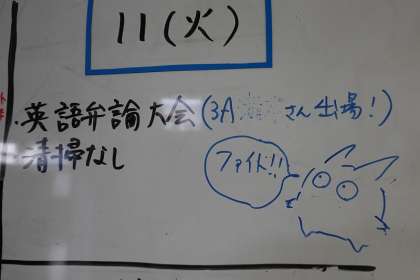 11(火)
・英語弁論大会(3A さん出場!)
清掃なし
ファイト!!